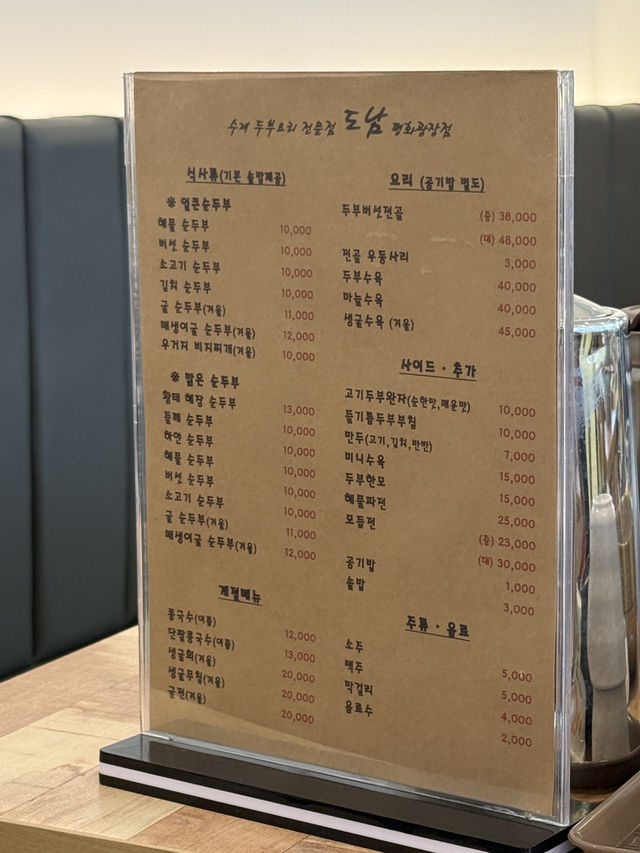 수제 두부요리 전문점 도남 평화광장점
식사류(기본 솥밥제공)
※ 얼큰순두부
해물 순두부 10,000
버섯 순두부 10,000
소고기 순두부 10,000
김치 순두부 10,000
굴 순두부(겨울) 11,000
매생이굴 순두부(겨울) 12,000
우거지 비지찌개(겨울) 10,000
※ 맑은 순두부
황태 해장 순두부 13,000
들깨 순두부 10,000
하얀 순두부 10,000
해물 순두부 10,000
버섯 순두부 10,000
소고기 순두부 10,000
굴 순두부(겨울) 11,000
매생이굴 순두부(겨울) 12,000
계절메뉴
콩국수(여름) 12,000
단팥콩국수(여름) 13,000
생굴회(겨울) 20,000
생굴무침(겨울) 20,000
굴전(겨울) 20,000
요리 (공기밥 별도)
두부버섯전골 (중) 38,000
(대) 48,000
전골 우동사리 3,000
두부수육 40,000
마늘수육 40,000
생굴수육 (겨울) 45,000
사이드 · 추가
고기두부완자(순한맛,매운맛) 10,000
들기름두부부침 10,000
만두(고기,김치,반반) 7,000
미니수육 15,000
두부한모 15,000
해물파전 25,000
모듬전 (중) 23,000
(대) 30,000
공기밥 1,000
솥밥 3,000
주류 · 음료
소주 5,000
맥주 5,000
막걸리 4,000
음료수 2,000